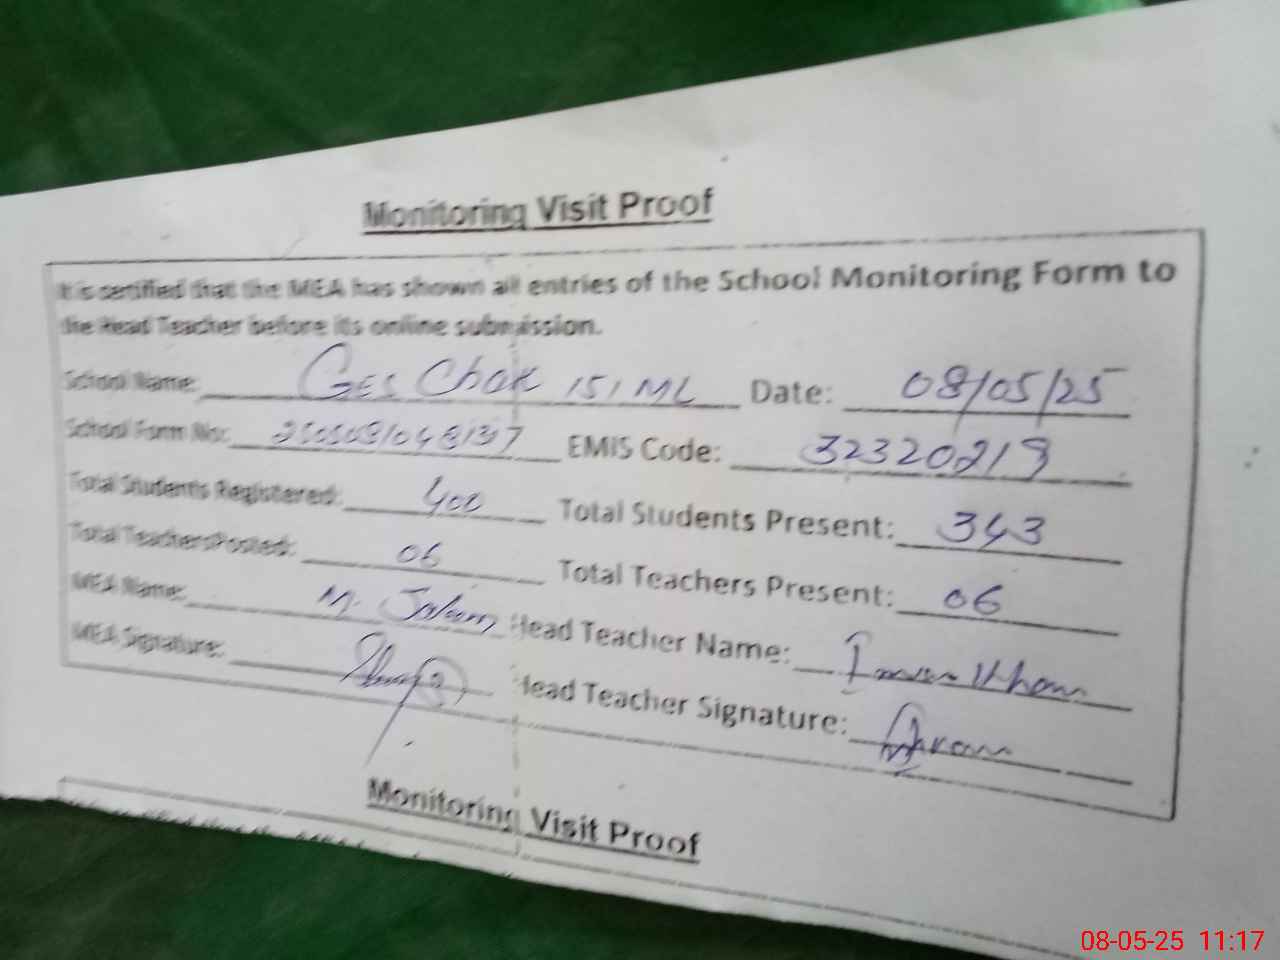 Monitoring Visit Proof
It is certified that the MEA has shown all entries of the School Monitoring Form to
the Head Teacher before its online submission.
School Name: GES Chak 151 ML Date: 08/05/25
School Form No: EMIS Code: 32320219
Total Students Registered: 400 Total Students Present: 343
Total TeachersPosted: 06 Total Teachers Present: 06
MEA Name: M. Head Teacher Name: Imran Khan
MEA Signature: Head Teacher Signature:
Monitoring Visit Proof
08-05-25 11:17